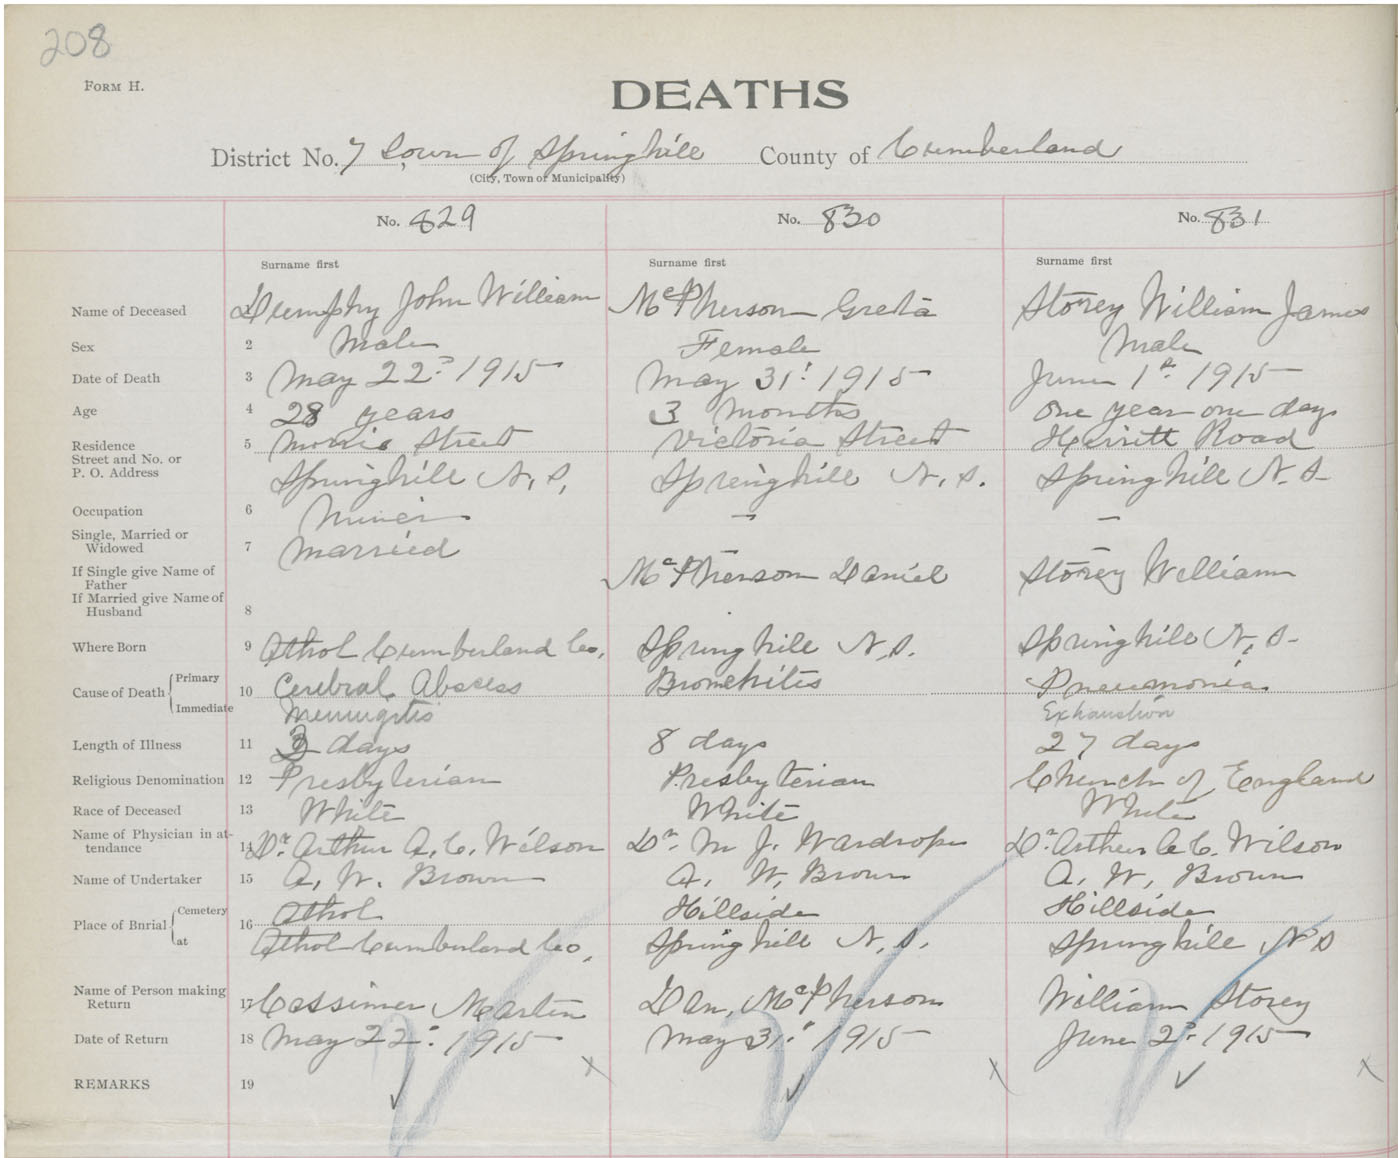 208
FORM H.
DEATHS
District No. 7 Town of Springhill County of Cumberland
(City, Town of Municipality)
No. 829 No. 830 No. 831
Surname first Surname first Surname first
Name of Deceased Dumphy John William McPherson Greta Storey William James
Sex 2 Male Female Male
Date of Death 3 May 22nd 1915 May 31st 1915 June 1st 1915
Age 4 28 years 3 months one year one day
Residence 5 Morris Street Victoria Street Herrett Road
Street and No. or
P. O. Address Springhill N.S. Springhill N.S. Springhill N.S
Occupation 6 Miner — —
Single, Married or
Widowed 7 Married —  —
If Single give Name of
Father McPherson Daniel Storey William
If Married give Name of
Husband 8
Where Born 9 Athol Cumberland Co. Springhill N.S. Springhill N.S
Cause of Death Primary 10 Cerebral Abscess Bronchitis Pneumonia
Immediate Meningitis Exhaustion
Length of Illness 11 3 days 8 days 27 days
Religious Denomination 12 Presbyterian Presbyterian Church of England
Race of Deceased 13 White White White
Name of Physician in at-
tendance 14 Dr. Arthur A. C. Wilson Dr M J. Wardrope Dr. Arthur A C. Wilson
Name of Undertaker 15 A. W. Brown A. W. Brown A. W. Brown
Place of Bnrial Cemetery 16 Athol Hillside Hillside
at Athol Cumberland Co. Springhill N.S. Springhill N S
Name of Person making
Return 17 Cassimer Martin Dan. McPherson William Storey
Date of Return 18 May 22nd 1915 May 31st 1915 June 2nd 1915
REMARKS 19